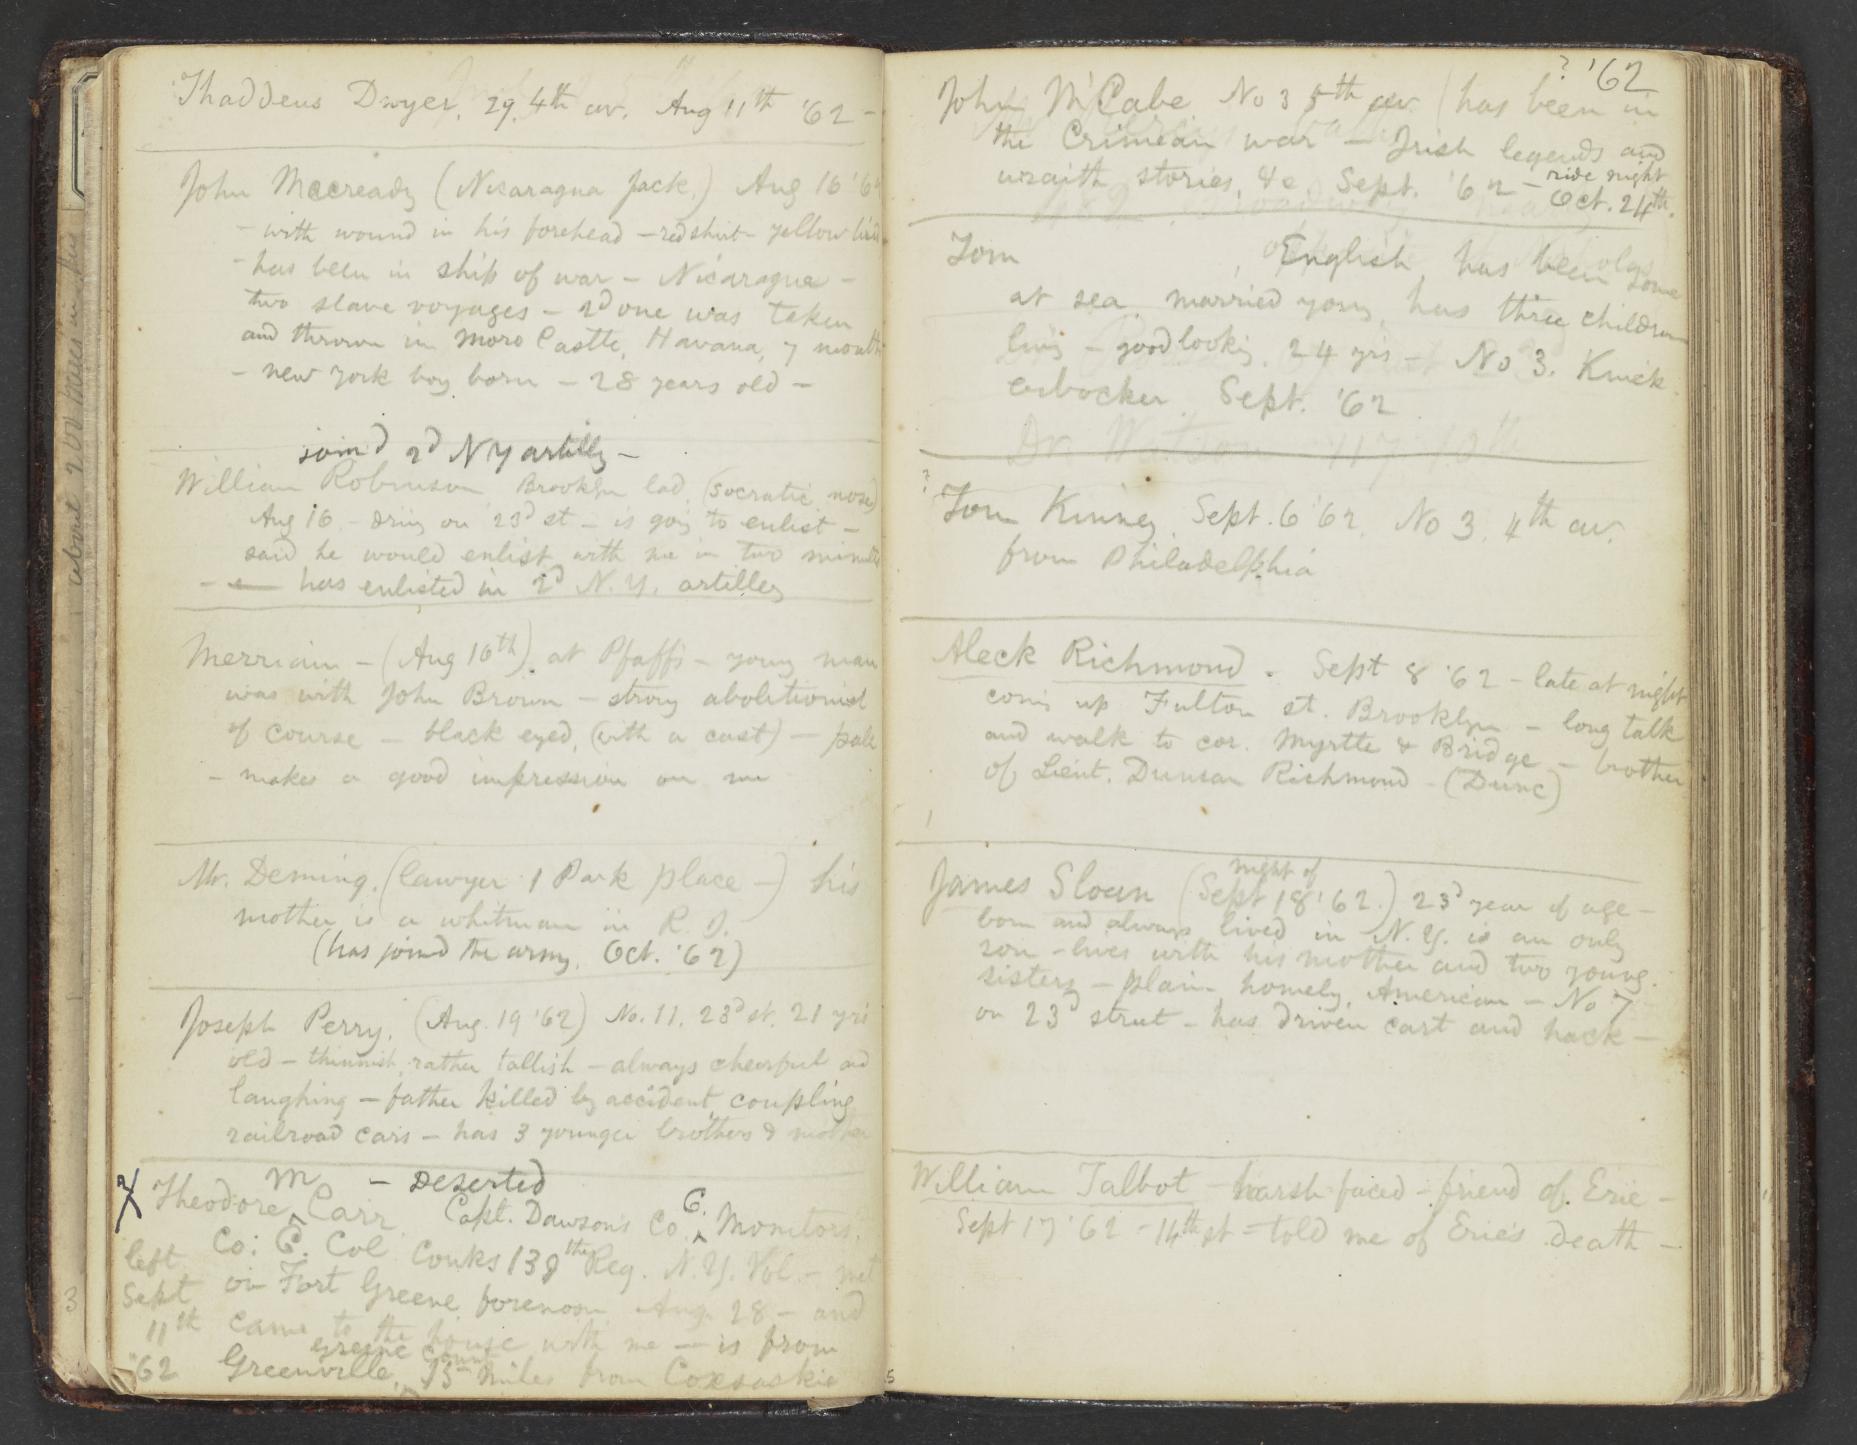 Thaddeus Dwyer, 29, 4th av. Aug 11th '62 –
John Maccready (Nicaragua Jack.) Aug 16 '62
– with wound in his forehead – red shirt – yellow
– has been in ship of war – Nicaragua –
two slave voyages – 2d one was taken
and thrown in Moro Castle, Havana, 7 months
– new york boy born – 28 years old –
join'd 2d N Y artilly –
William Robinson Brooklyn lad, (socratic nose)
Aug 16 – driv on 23d st – is goig to enlist –
said he would enlist with me in two minutes
– has enlisted in 2d N.Y. artillery
Merriam – (Aug 16th) at Pfaff's – young man
was with John Brown – strong abolitionist
of course – black eyed, (with a cast) – pale
– makes a good impression on me
Mr. Deming, (lawyer 1 Park place –) his
mother is a whitman in R. I.
(has joined the army, Oct. '62)
Joseph Perry, (Aug. 19 '62) No. 11. 23d st. 21 yrs
old – thinnish, rather tallish – always cheerful and
laughing – father killed by accident, coupling
railroad cars – has 3 younger brothers & mother
M – Deserted
Theodore Carr Capt. Dawson's Co. C. Monitors.
Co: C. Col Conks 139th Reg. N.Y. Vol – met
left
on Fort Greene forenoon Aug. 28 – and
Sept
came to the house with me – is from
11th
Greene County
Greenville, 15 miles from Coxsackie
'62
3
? '62
John M'Cabe No 3 5th av. (has been in
the Crimean war – Irish legends and
wraith stories, &c. Sept. '62 – ride night
Oct. 24th.
Tom , English, has been some
at sea, married young, has three children
livig – good lookig, 24 yrs – No 3. Knick
erbocker. Sept. '62
?
Tom Kinney Sept. 6 '62. No 3. 4th av.
from Philadelphia
Aleck Richmond – Sept 8 '62 – late at night
comig up Fulton st. Brooklyn – long talk
and walk to cor. Myrtle & Bridge – brother
of Lieut. Duncan Richmond – (Dunc)
night of
James Sloan (Sept 18 '62.) 23d year of age –
born and always lived in N.Y. is an only
son – lives with his mother and two young
sisters – plain, homely, American – No 7
on 23d street – has driven cart and hack –
William Talbot – harsh faced – friend of Eric –
Sept 17 '62 – 14th st – told me of Eric's death –
5